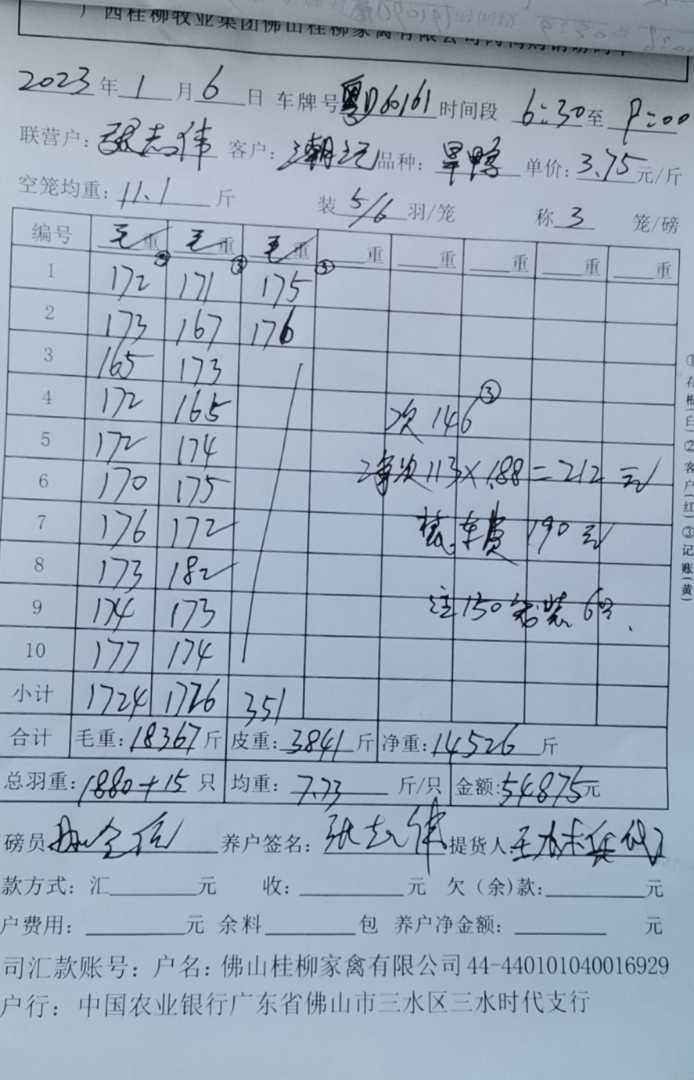 广西桂柳牧业集团佛山桂柳家禽有限公司
2023年1月6日 车牌号粤D60161时间段 6:30至 9:00
联营户:张志伟 客户:潮记品种:旱鸭 单价:3.75元/斤
空笼均重:11.1斤 装5/6羽/笼 称3笼/磅
编号 毛重 毛重 毛重 重 重 重 重 重
② ③ ③
1 172 171 175
2 173 167 176
3 165 173
4 172 165 次146③
5 172 174
6 170 175 净次113×1.88=212元
7 176 172 车费190元
8 173 182
9 174 173 注150笼装6只.
10 177 174
小计 1724 1726 351
合计 毛重:18367斤 皮重:3841斤 净重:14526斤
总羽重:1880+15只 均重:7.73斤/只 金额:54875元
磅员 养户签名:张志伟 提货人:
款方式:汇 元 收: 元 欠(余)款: 元
户费用: 元 余料 包 养户净金额: 元
司汇款账号:户名:佛山桂柳家禽有限公司 44-440101040016929
户行:中国农业银行广东省佛山市三水区三水时代支行
①存根(白)②客户(红)③记账(黄)